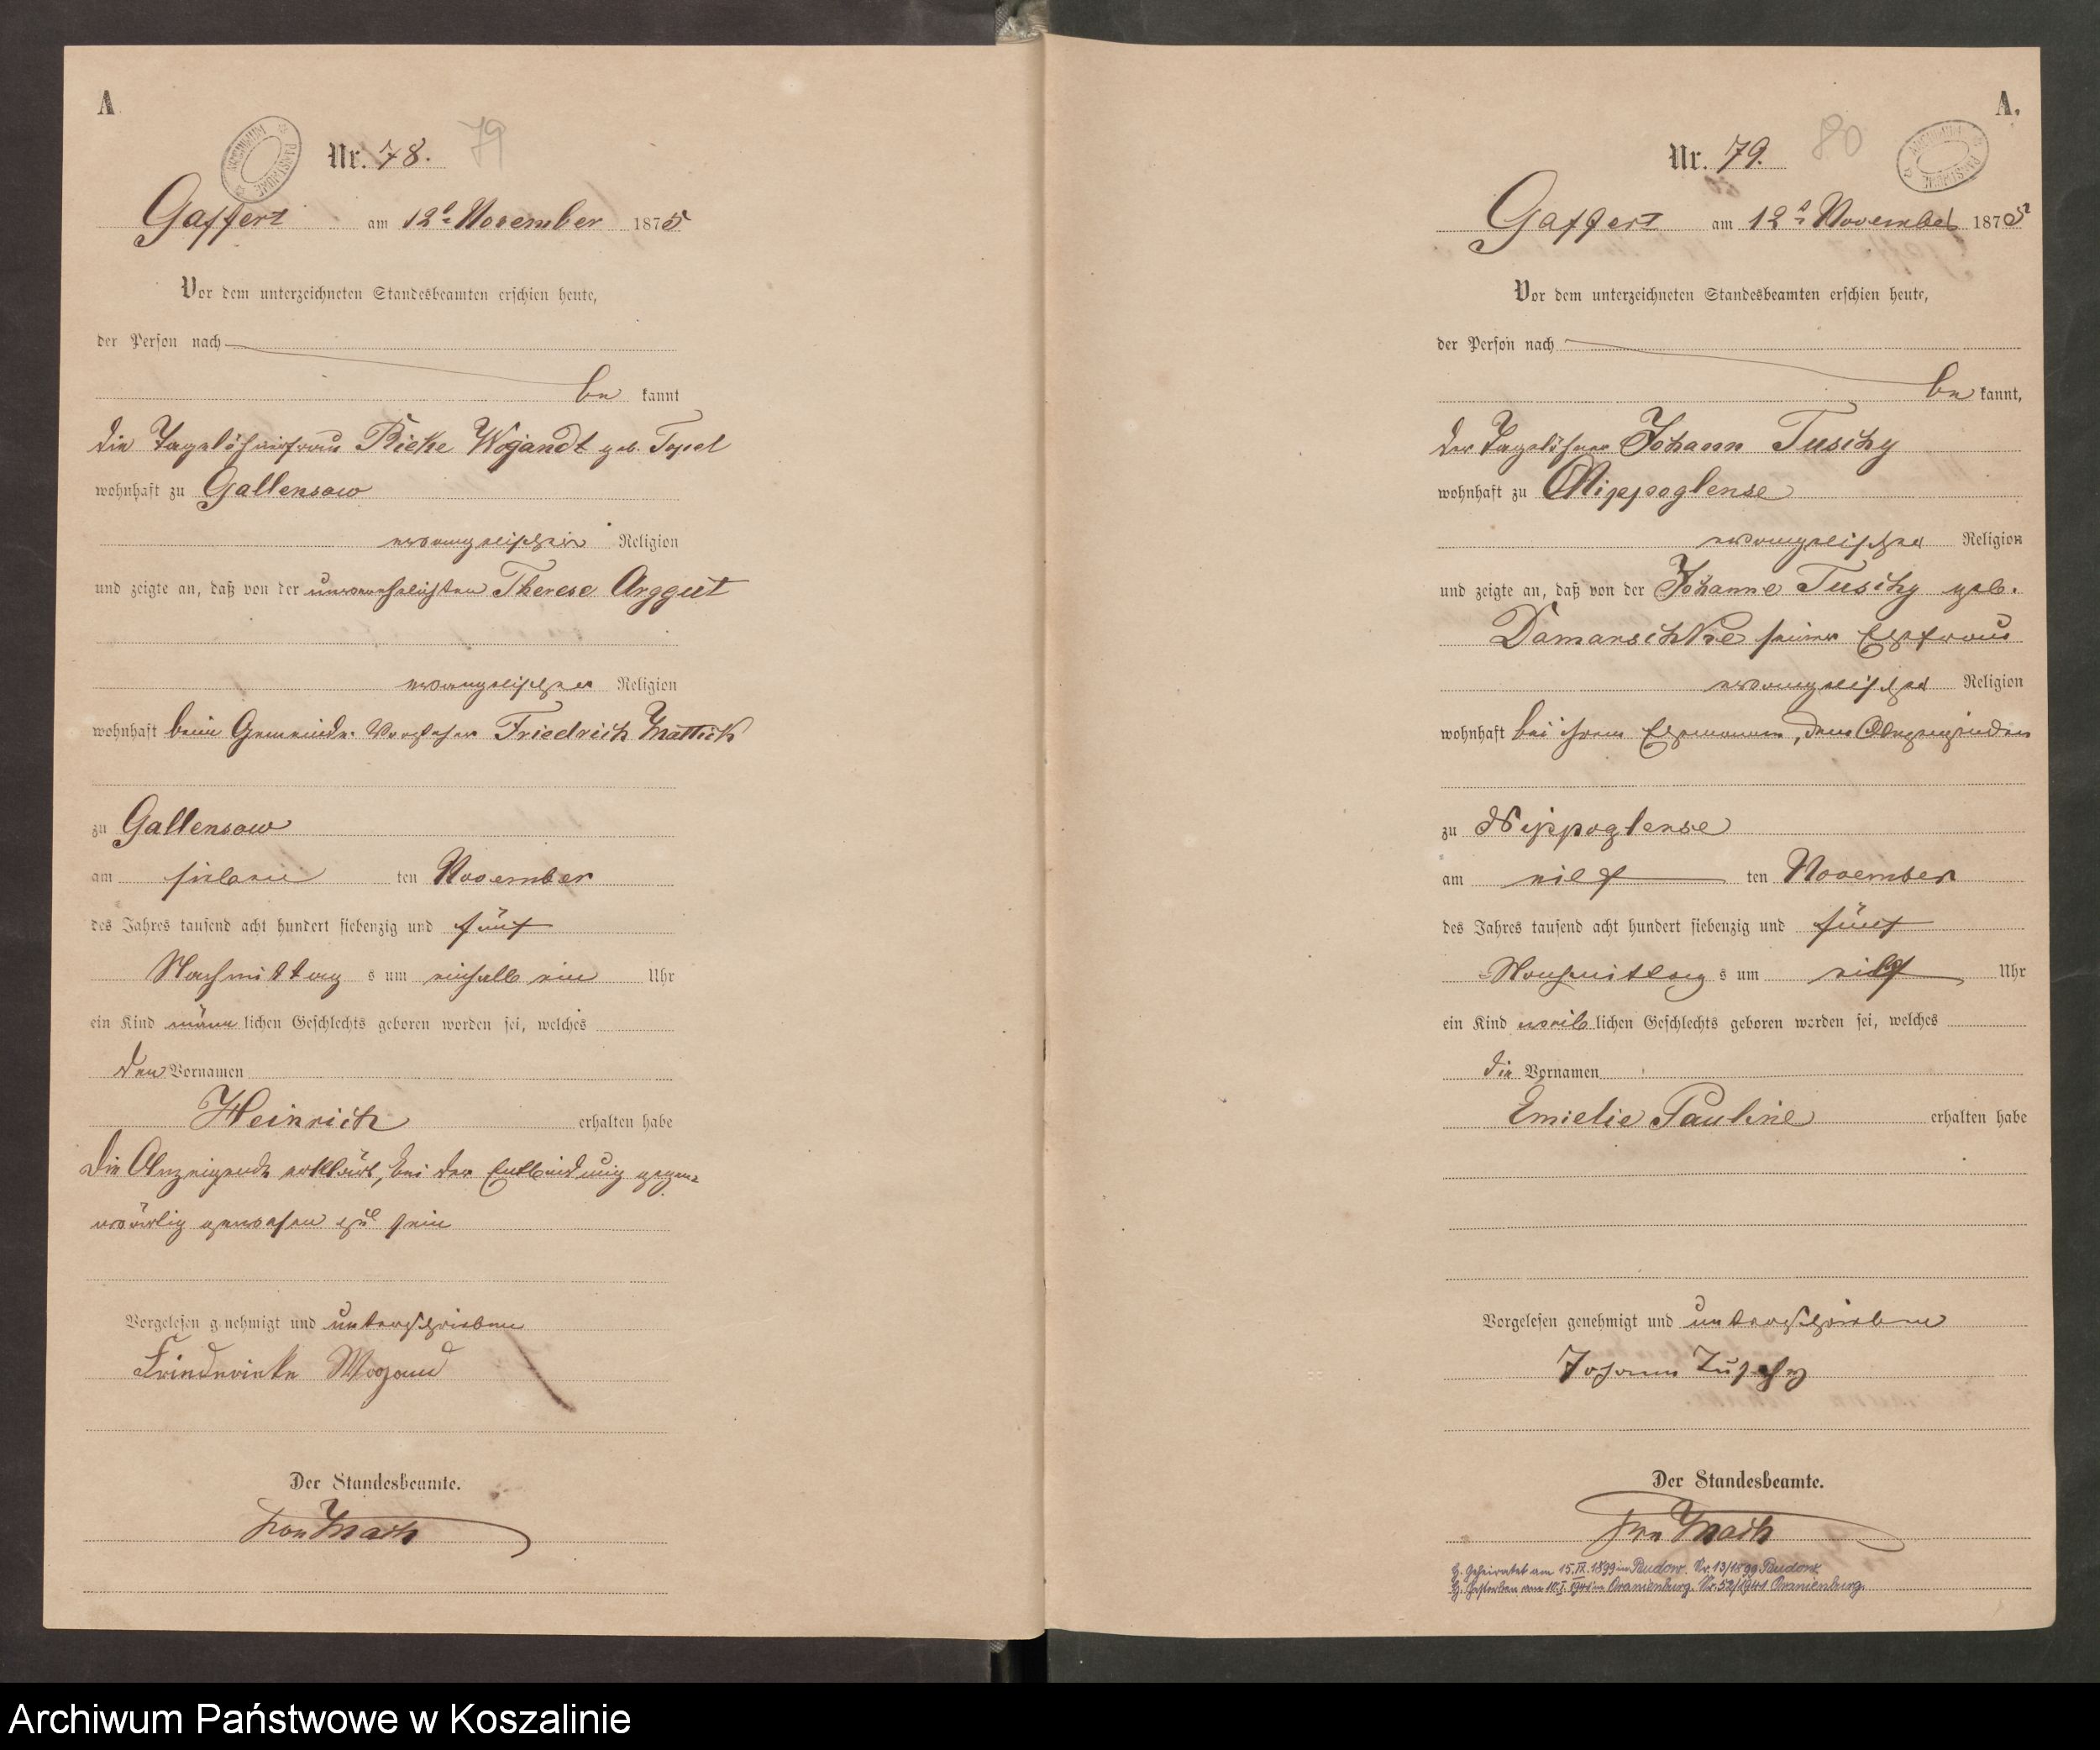 A
ARCHIWUM PAŃSTWOWE
Nr. 78. 79
Gaffert am 12t November 1875
Vor dem unterzeichneten Standesbeamten erschien heute,
der Person nach
be kannt
die Tagelöhnerfrau Rieke Wojandt geb. Topel
wohnhaft zu Gallensow
evangelischer Religion
und zeigte an, daß von der unverehelichten Therese Arggut
evangelischer Religion
wohnhaft beim Gemeinde-Vorsteher Friedrich Mattick
zu Gallensow
am sieben ten November
des Jahres tausend acht hundert siebenzig und fünf
Nachmittag s um einhalb ein Uhr
ein Kind männ lichen Geschlechts geboren worden sei, welches
den Vornamen
Heinrich erhalten habe
Die Anzeigende erklärt, bei der Entbindung gegen-
wärtig gewesen zu sein
Vorgelesen genehmigt und unterschrieben
Friederieke Wojand
Der Standesbeamte.
von Mach
A.
ARCHIWUM PAŃSTWOWE
Nr. 79. 80
Gaffert am 12t November 1875
Vor dem unterzeichneten Standesbeamten erschien heute,
der Person nach
be kannt,
der Tagelöhner Johann Tuschy
wohnhaft zu Nippoglense
evangelischer Religion
und zeigte an, daß von der Johanne Tuschy geb.
Damanschke seiner Ehefrau
evangelischer Religion
wohnhaft bei ihrem Ehemanne, dem Anzeigenden
zu Nippoglense
am eilf ten November
des Jahres tausend acht hundert siebenzig und fünf
Nachmittag s um eilf Uhr
ein Kind weib lichen Geschlechts geboren worden sei, welches
die Vornamen
Emielie Pauline erhalten habe
Vorgelesen genehmigt und unterschrieben
Johann Tuschy
Der Standesbeamte.
von Mach
G. Geheiratet am 15.IX.1899 in Budow. Nr. 13/1899 Budow.
G. Gestorben am 10.I.1941 in Oranienburg. Nr. 52/1941 Oranienburg.
Archiwum Państwowe w Koszalinie